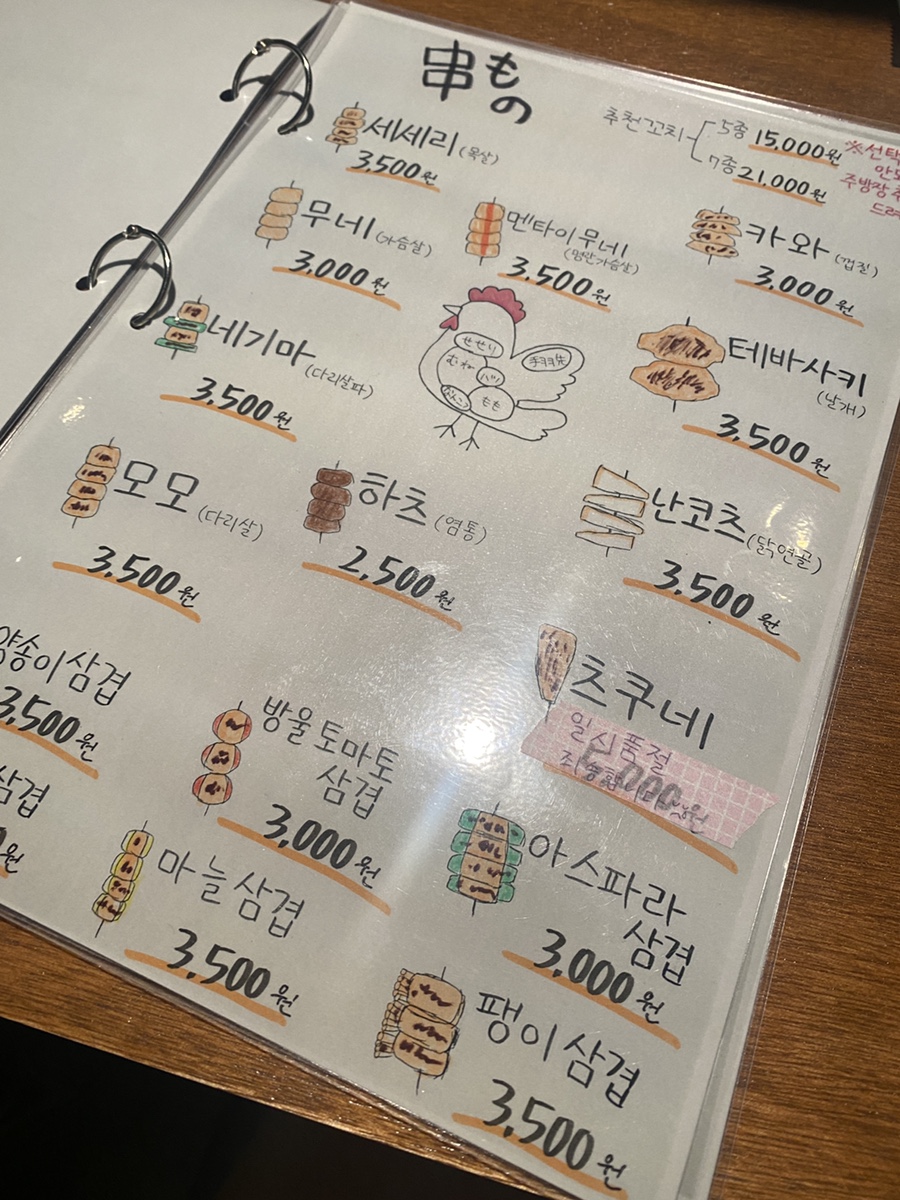 串もの
추천꼬치
5종 15,000원
7종 21,000원
※선택
주방장
세세리 (목살)
3,500원
무네 (가슴살)
3,000원
멘타이무네
(명란가슴살)
3,500원
카와 (껍질)
3,000원
네기마
(다리살파)
3,500원
せせり
むね
ハツ
もも
手羽先
테바사키
(날개)
3,500원
모모 (다리살)
3,500원
하츠 (염통)
2,500원
난코츠 (닭연골)
3,500원
양송이삼겹
3,500원
삼겹
원
방울토마토
삼겹
3,000원
츠쿠네
일시품절
원
마늘삼겹
3,500원
아스파라
삼겹
3,000원
팽이삼겹
3,500원